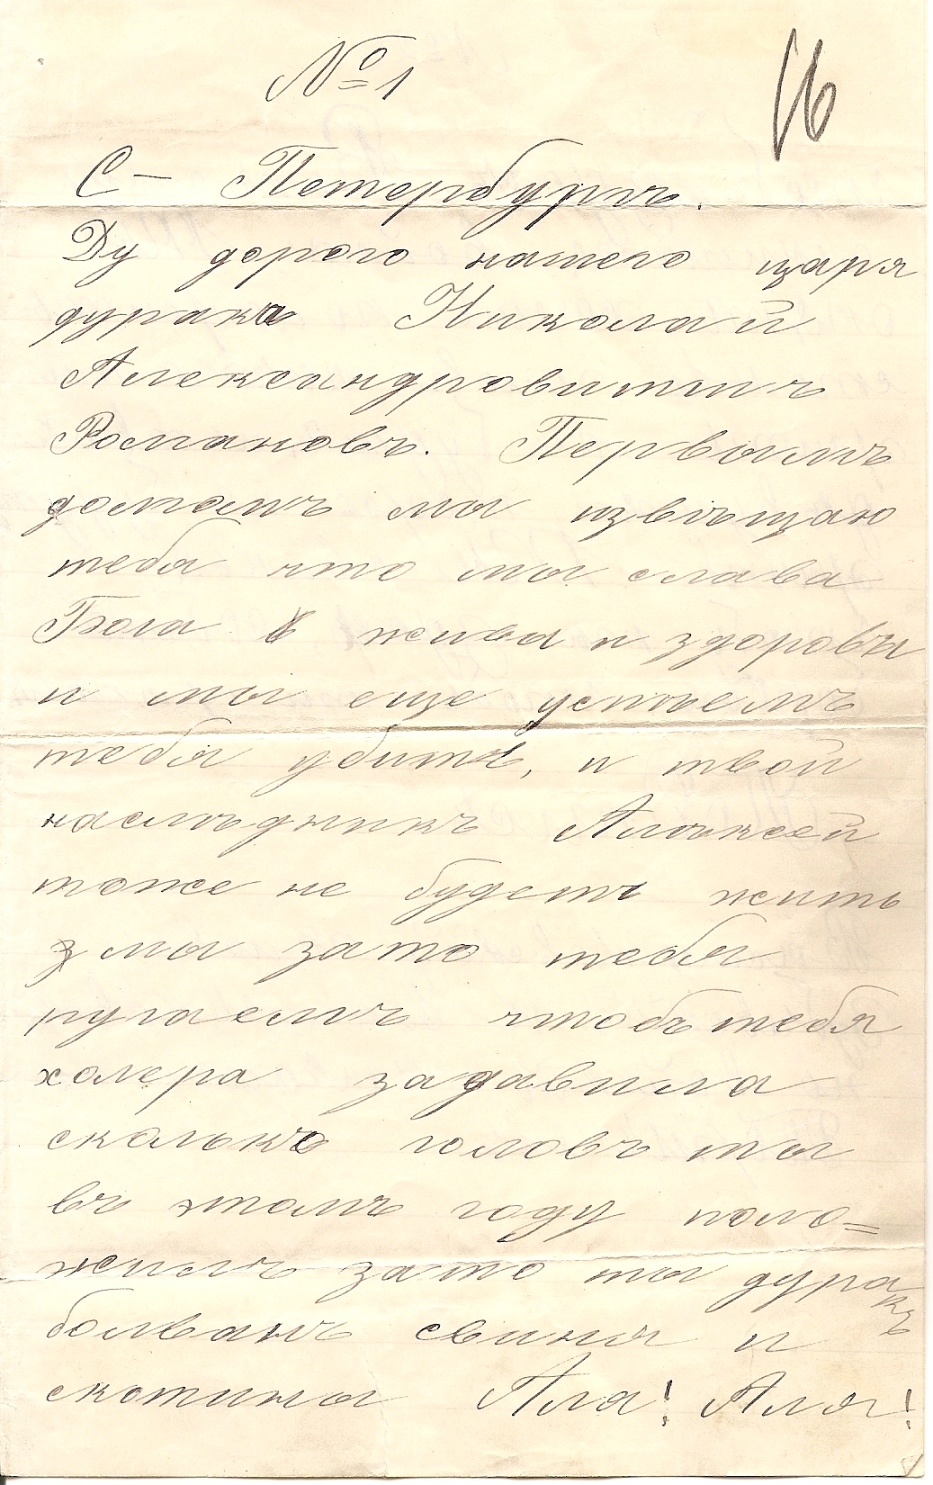 № 1
16
С– Петербургъ.
Ду дорого нашего царя
дурака Николай
Александровитшъ
Романовъ. Первымъ
долгомъ мы извѣщаю
тебя что мы слава
Бога жива и здоровы
и мы еще успѣемъ
тебя убитъ, и твой
наслѣдникъ Алѣксей
тоже не будетъ жить
мы зато тебя
ругаемъ чтобъ тебя
холера задавила
сколько головъ ты
въ этомъ году поло=
жилъ зато ты дуракъ
болванъ свиня и
скотины Ала! Аля!